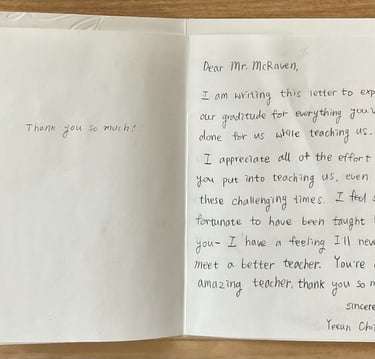 Thank you so much!
Dear Mr. McRaven,
I am writing this letter to exp
our graditude for everything you'v
done for us while teaching us.
I appreciate all of the effort
you put into teaching us, even
these challenging times. I feel s
fortunate to have been taught
you- I have a feeling I'll neve
meet a better teacher. You're
amazing teacher, thank you so m
sincere
Yeeun Cho